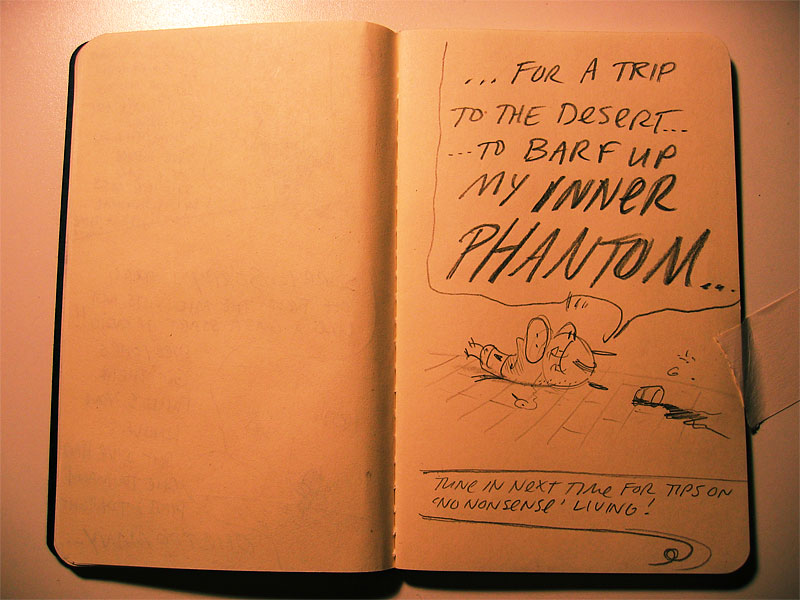 ... FOR A TRIP
TO THE DESERT...
...TO BARF UP
MY INNER
PHANTOM...
TUNE IN NEXT TIME FOR TIPS ON
'NO NONSENSE' LIVING!